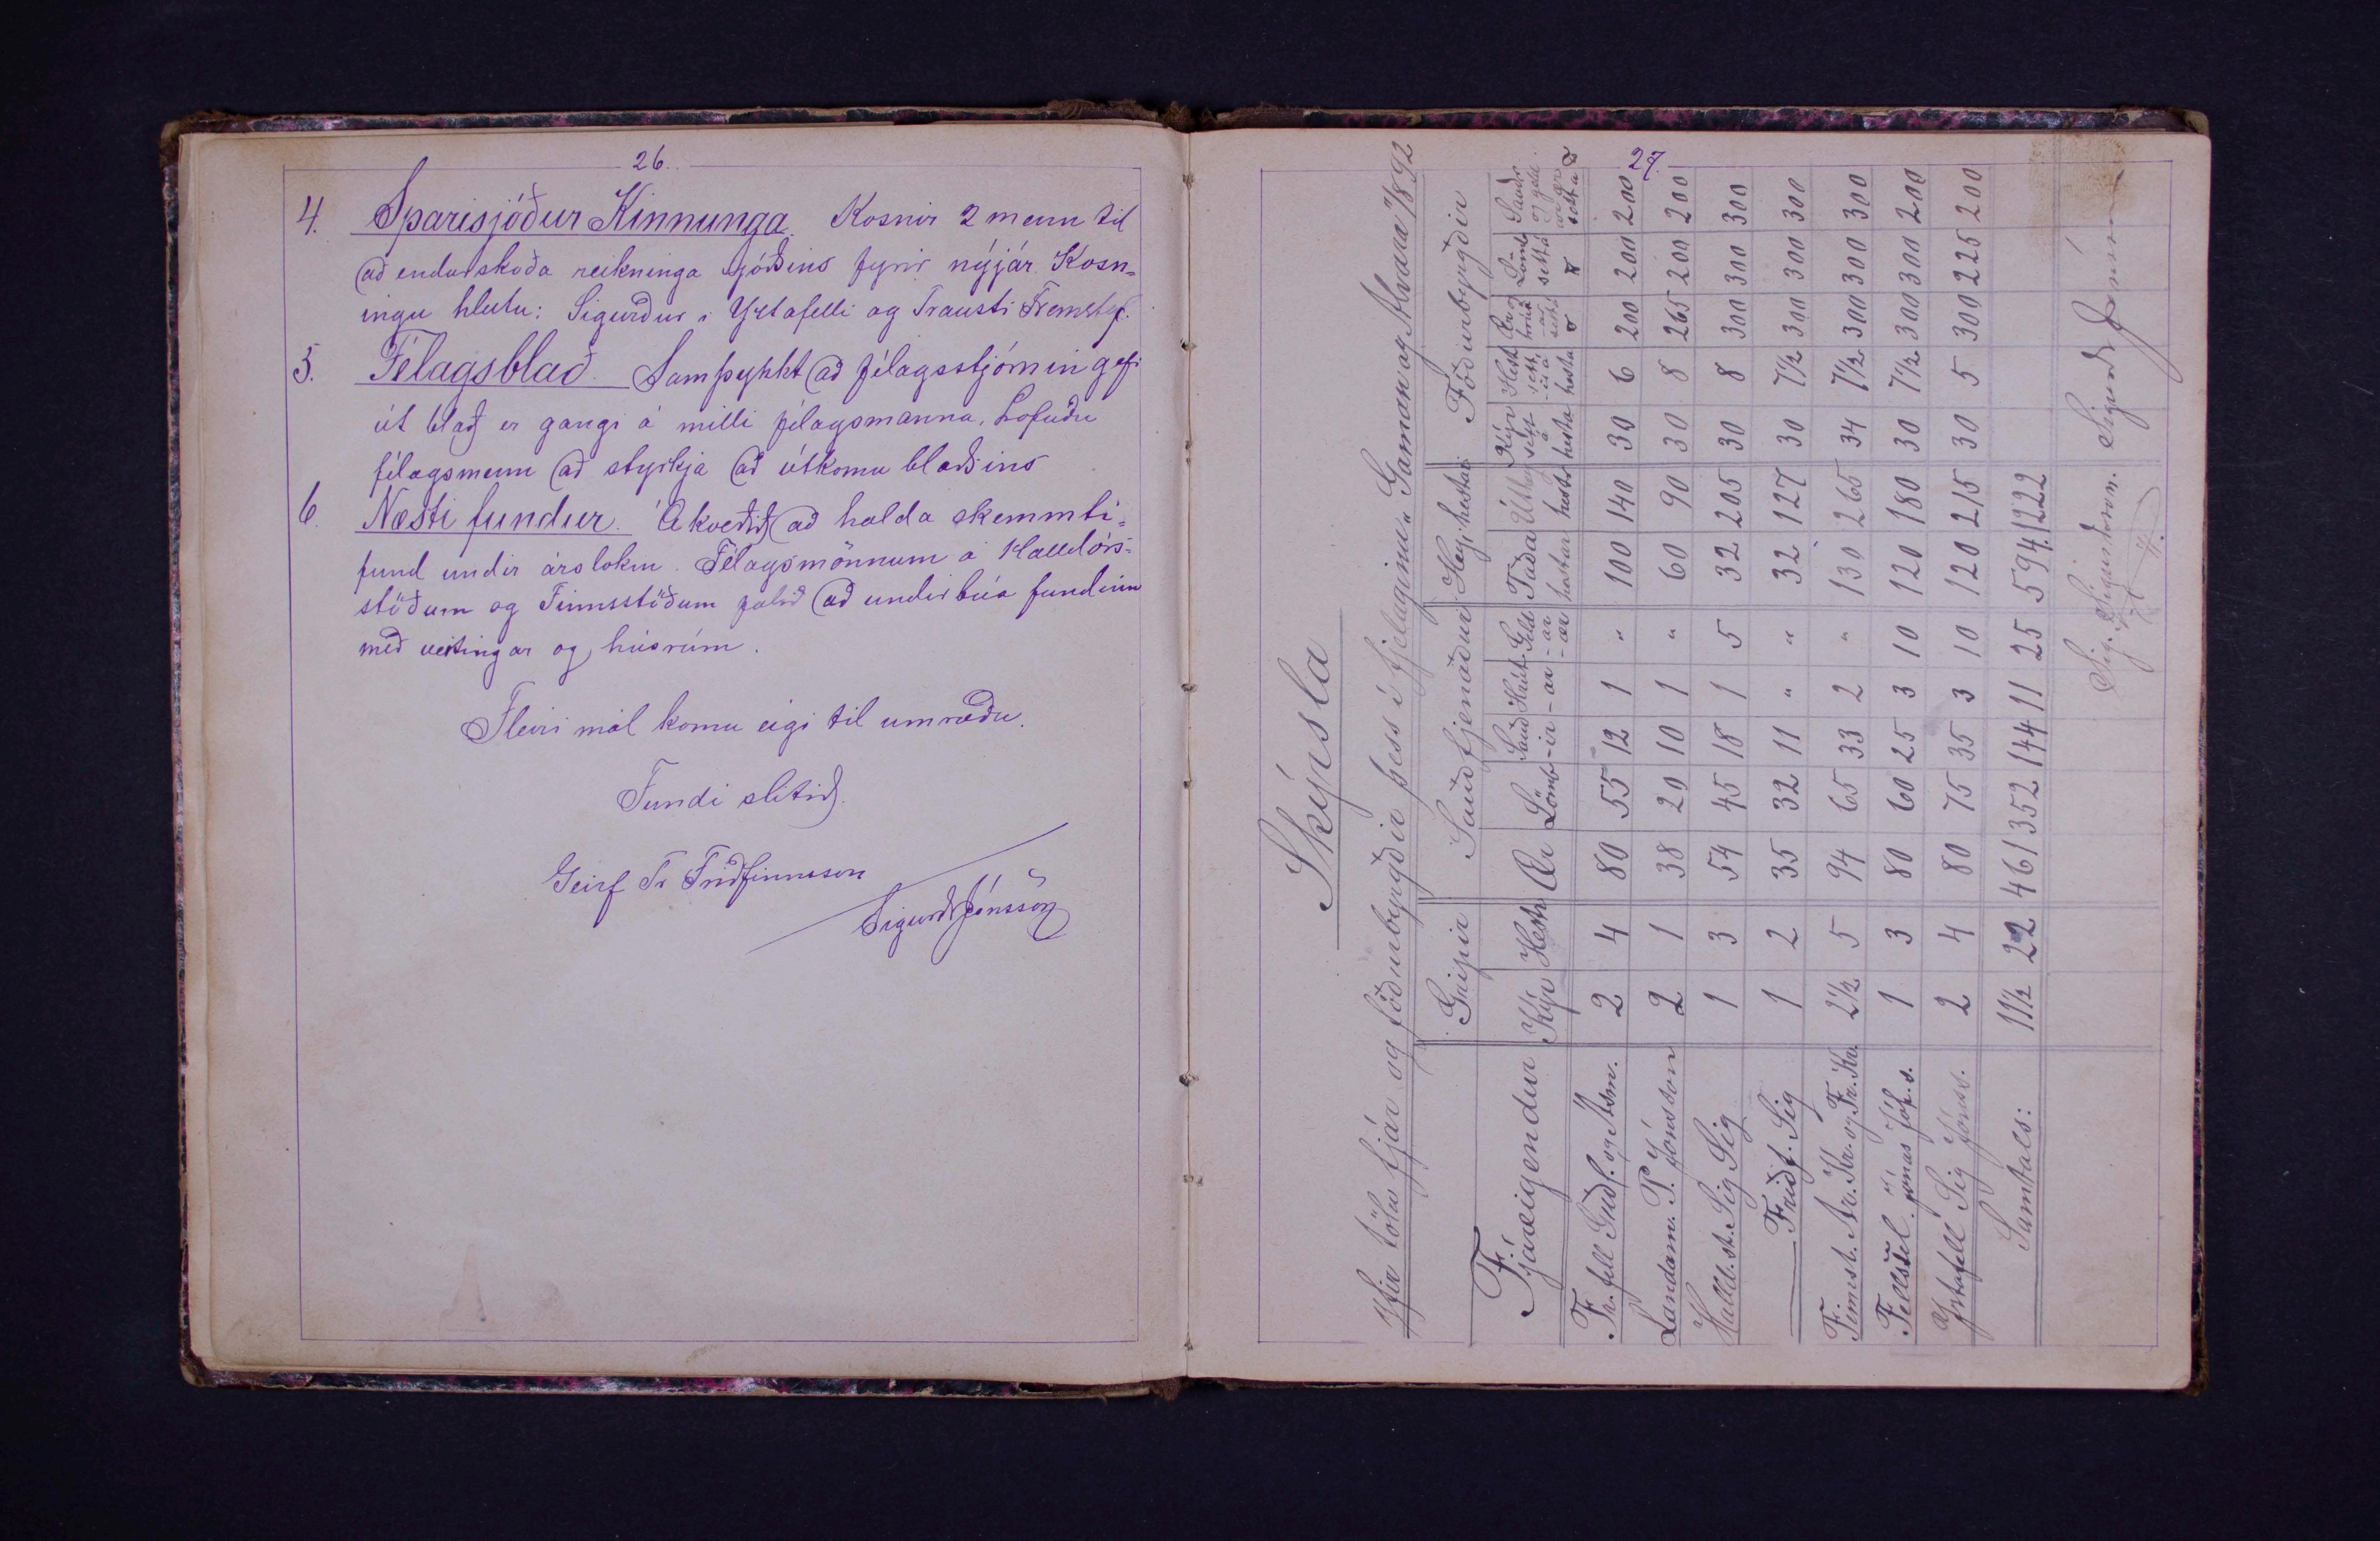 26.
4. Sparisjóður Kinnunga. Kosnir 2 menn til
að endurskoða reikninga sjóðsins fyrir nýjár. Kosn-
ingu hlutu: Sigurður í Yztafelli og Trausti Fremstaf.
5. Félagsblað. Samþykkt að félagsstjórnin gefi
út blað er gangi á milli félagsmanna. Lofuðu
félagsmenn að styrkja að útkomu blaðsins
6. Næsti fundur. Ákveðið að halda skemmti-
fund undir árslokin. Félagsmönnum á Halldórs-
stöðum og Finnsstöðum falið að undirbúa fundinn
með veitingar og húsrúm.
Fleiri mál komu eigi til umræðu.
Fundi slitið.
Geirf. Tr. Friðfinnsson
Sigurðr Jónsson
27.
Skýrsla
Yfir tölu fjár og fóðurbyrgðir þess í fjelaginu Gaman og Alvara 1892
Gripir Sauðfjenaður Hey, hestar Fóðurbyrgðir
Fjáreigendur Kýr Hestr Ær Lömb Sauð-ir Hrút-ar Geld-ar-ær Taða hestar Úthey hestar Kýr sett á hesta Hest sett á hesta Lömb sett á
Fr.fell Guðl. og Ásm. 2 4 80 55 12 1 " 100 140 30 6 200 200 200
Landam. P. Jónsson 2 1 38 20 10 1 " 60 90 30 8 265 200 200
Halld.st. Sig Sig 1 3 54 45 18 1 5 32 205 30 8 300 300 300
— Friðf. Sig 1 2 35 32 11 " " 32 127 30 7½ 300 300 300
Finnst. Kr. og Fr. Kr. 2½ 5 94 65 33 2 " 130 265 34 7½ 300 300 300
Fellssel. Jónas Jóh.s. 1 3 80 60 25 3 10 120 180 30 7½ 300 300 200
Yztafell Sig Jónss. 2 4 80 75 35 3 10 120 215 30 5 300 225 200
Samtals: 11½ 22 461 352 144 11 25 594 1222
Sig. Sigurðsson. Sigurðr Jónsson